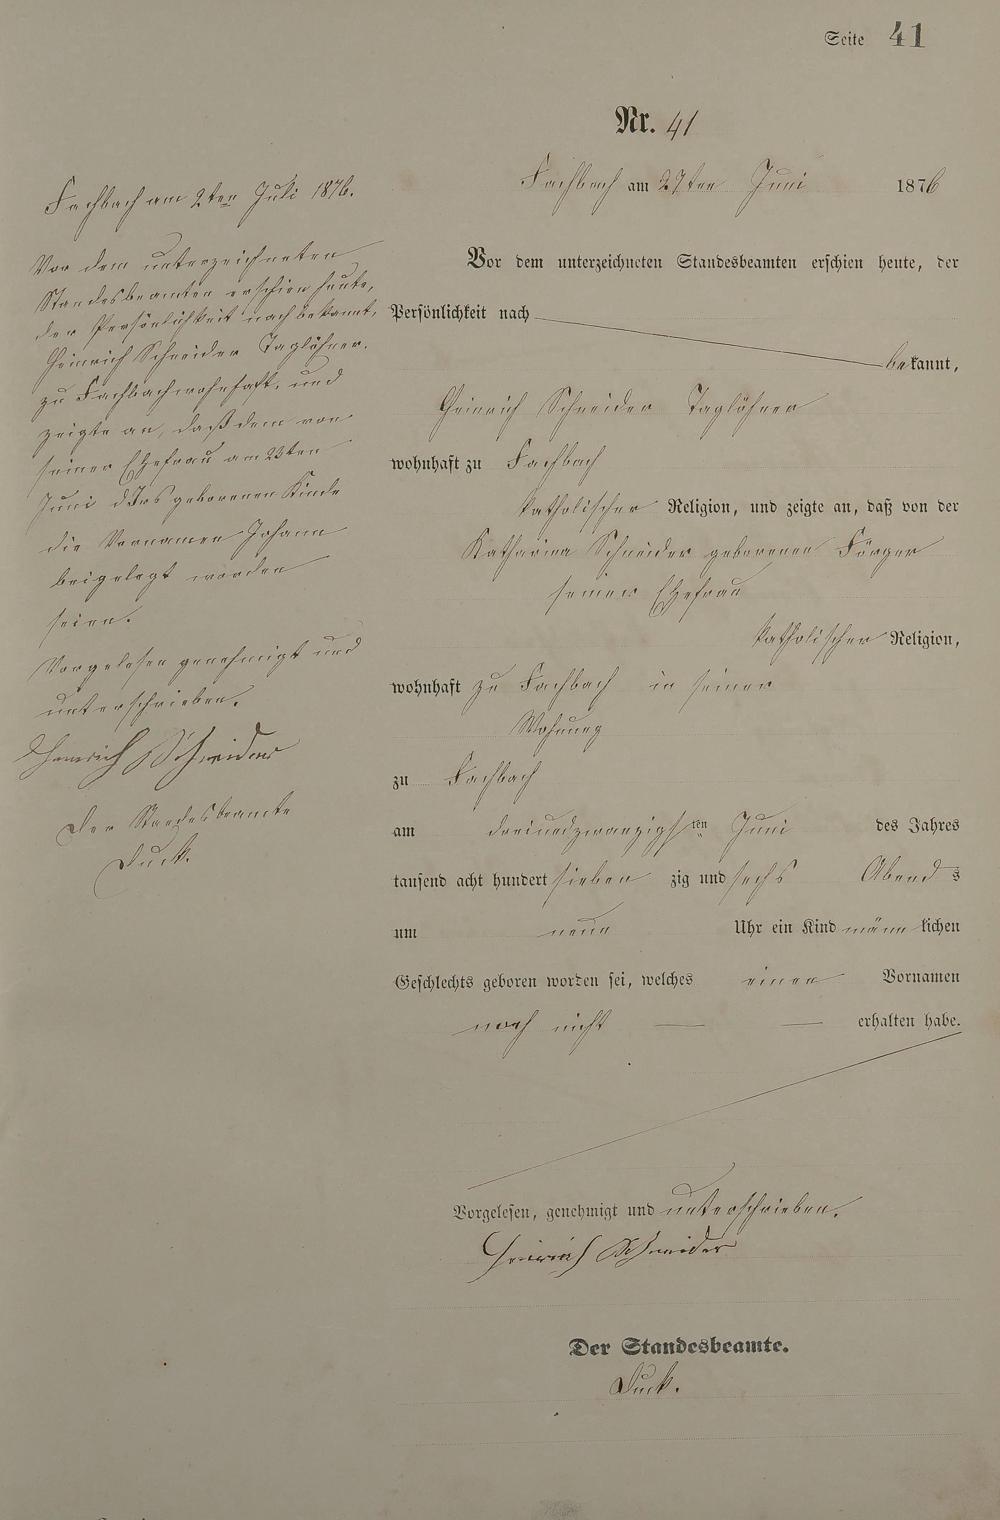 Seite 41
Nr. 41
Fachbach am 27ten Juni 1876
Vor dem unterzeichneten Standesbeamten erschien heute, der
Persönlichkeit nach
bekannt,
Heinrich Schneider Taglöhner
wohnhaft zu Fachbach
katholischer Religion, und zeigte an, daß von der
Katharina Schneider geborenen
seiner Ehefrau
katholischer Religion,
wohnhaft zu Fachbach in seiner
Wohnung
zu Fachbach
am dreiundzwanzigsten Juni des Jahres
tausend acht hundert siebenzig und sechs Abends
um neun Uhr ein Kind männlichen
Geschlechts geboren worden sei, welches einen Vornamen
noch nicht erhalten habe.
Vorgelesen, genehmigt und unterschrieben.
Heinrich Schneider
Der Standesbeamte.
Fachbach am 2ten Juli 1876.
Vor dem unterzeichneten
Standesbeamten erschien heute,
der Persönlichkeit nach bekannt,
Heinrich Schneider Taglöhner.
zu Fachbach wohnhaft, und
zeigte an, daß dem von
seiner Ehefrau am 23ten
Juni geborenen Kinde
die Vornamen Johann
beigelegt worden
seien.
Vorgelesen genehmigt und
unterschrieben.
Heinrich Schneider
Der Standesbeamte